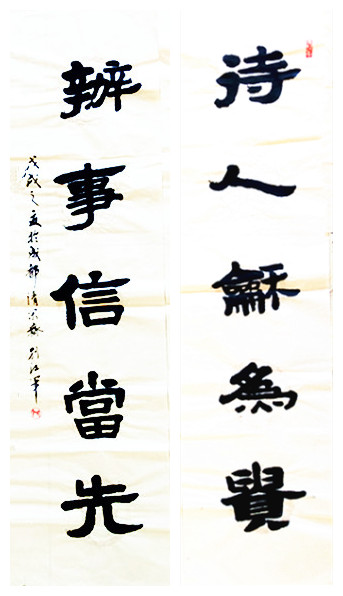 待人龢為貴
辦事信當先
戊戌之夏於成都